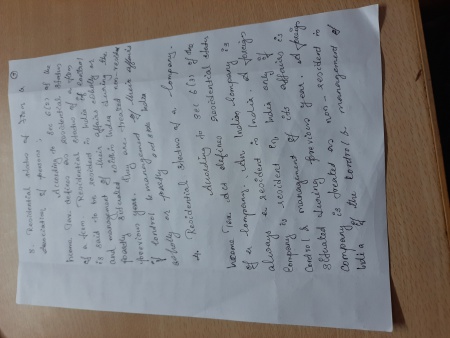 3. Residential status of Firm &
Association of persons:-
According to Sec 6(2) of the
Income Tax defines as residential status
of a firm. Residential status of a firm
is said to be resident in India if control
and management of their affairs wholly or
partly situated within India during the
previous year. They are treated non-resident
if control & management of their affairs
wholly or partly out side India
4. Residential Status of a Company:-
According to sec 6(3) of the
Income Tax act defines residential status
of a company. An Indian company is
always a resident in India. A foreign
Company is resident in India only if
Control & management of its affairs is
Situated during previous year. A foreign
Company is treated as non-resident in
India if the control & management of